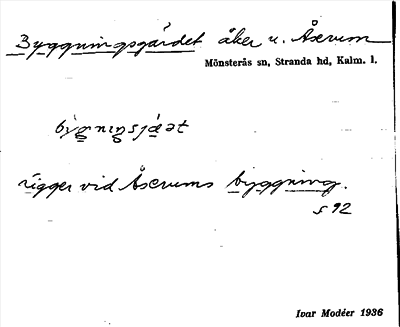 Byggningsgärdet åker u. Åserum
Mönsterås sn, Stranda hd, Kalm. l.
rigger vid Åserums byggning.
s 92
Ivar Modéer 1936